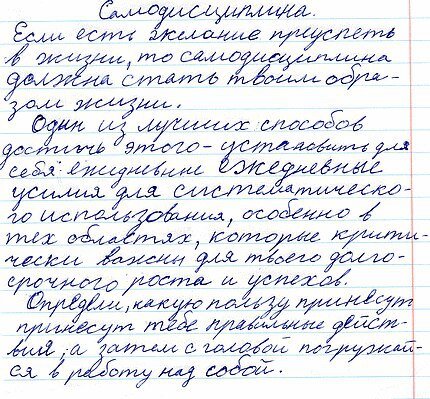 Самодисциплина.
Если есть желание приуспеть
в жизни, то самодисциплина
должна стать твоим обра-
зом жизни.
Один из лучших способов
достичь этого - установить для
себя ежидневные ежедневные
усилия для систематическо-
го использования, особенно в
тех областях, которые крити-
чески важны для твоего долго-
срочного роста и успехов.
Определи, какую пользу принесут
принесут тебе правильные действ-
вия, а затем с головой погружай-
ся в работу над собой.